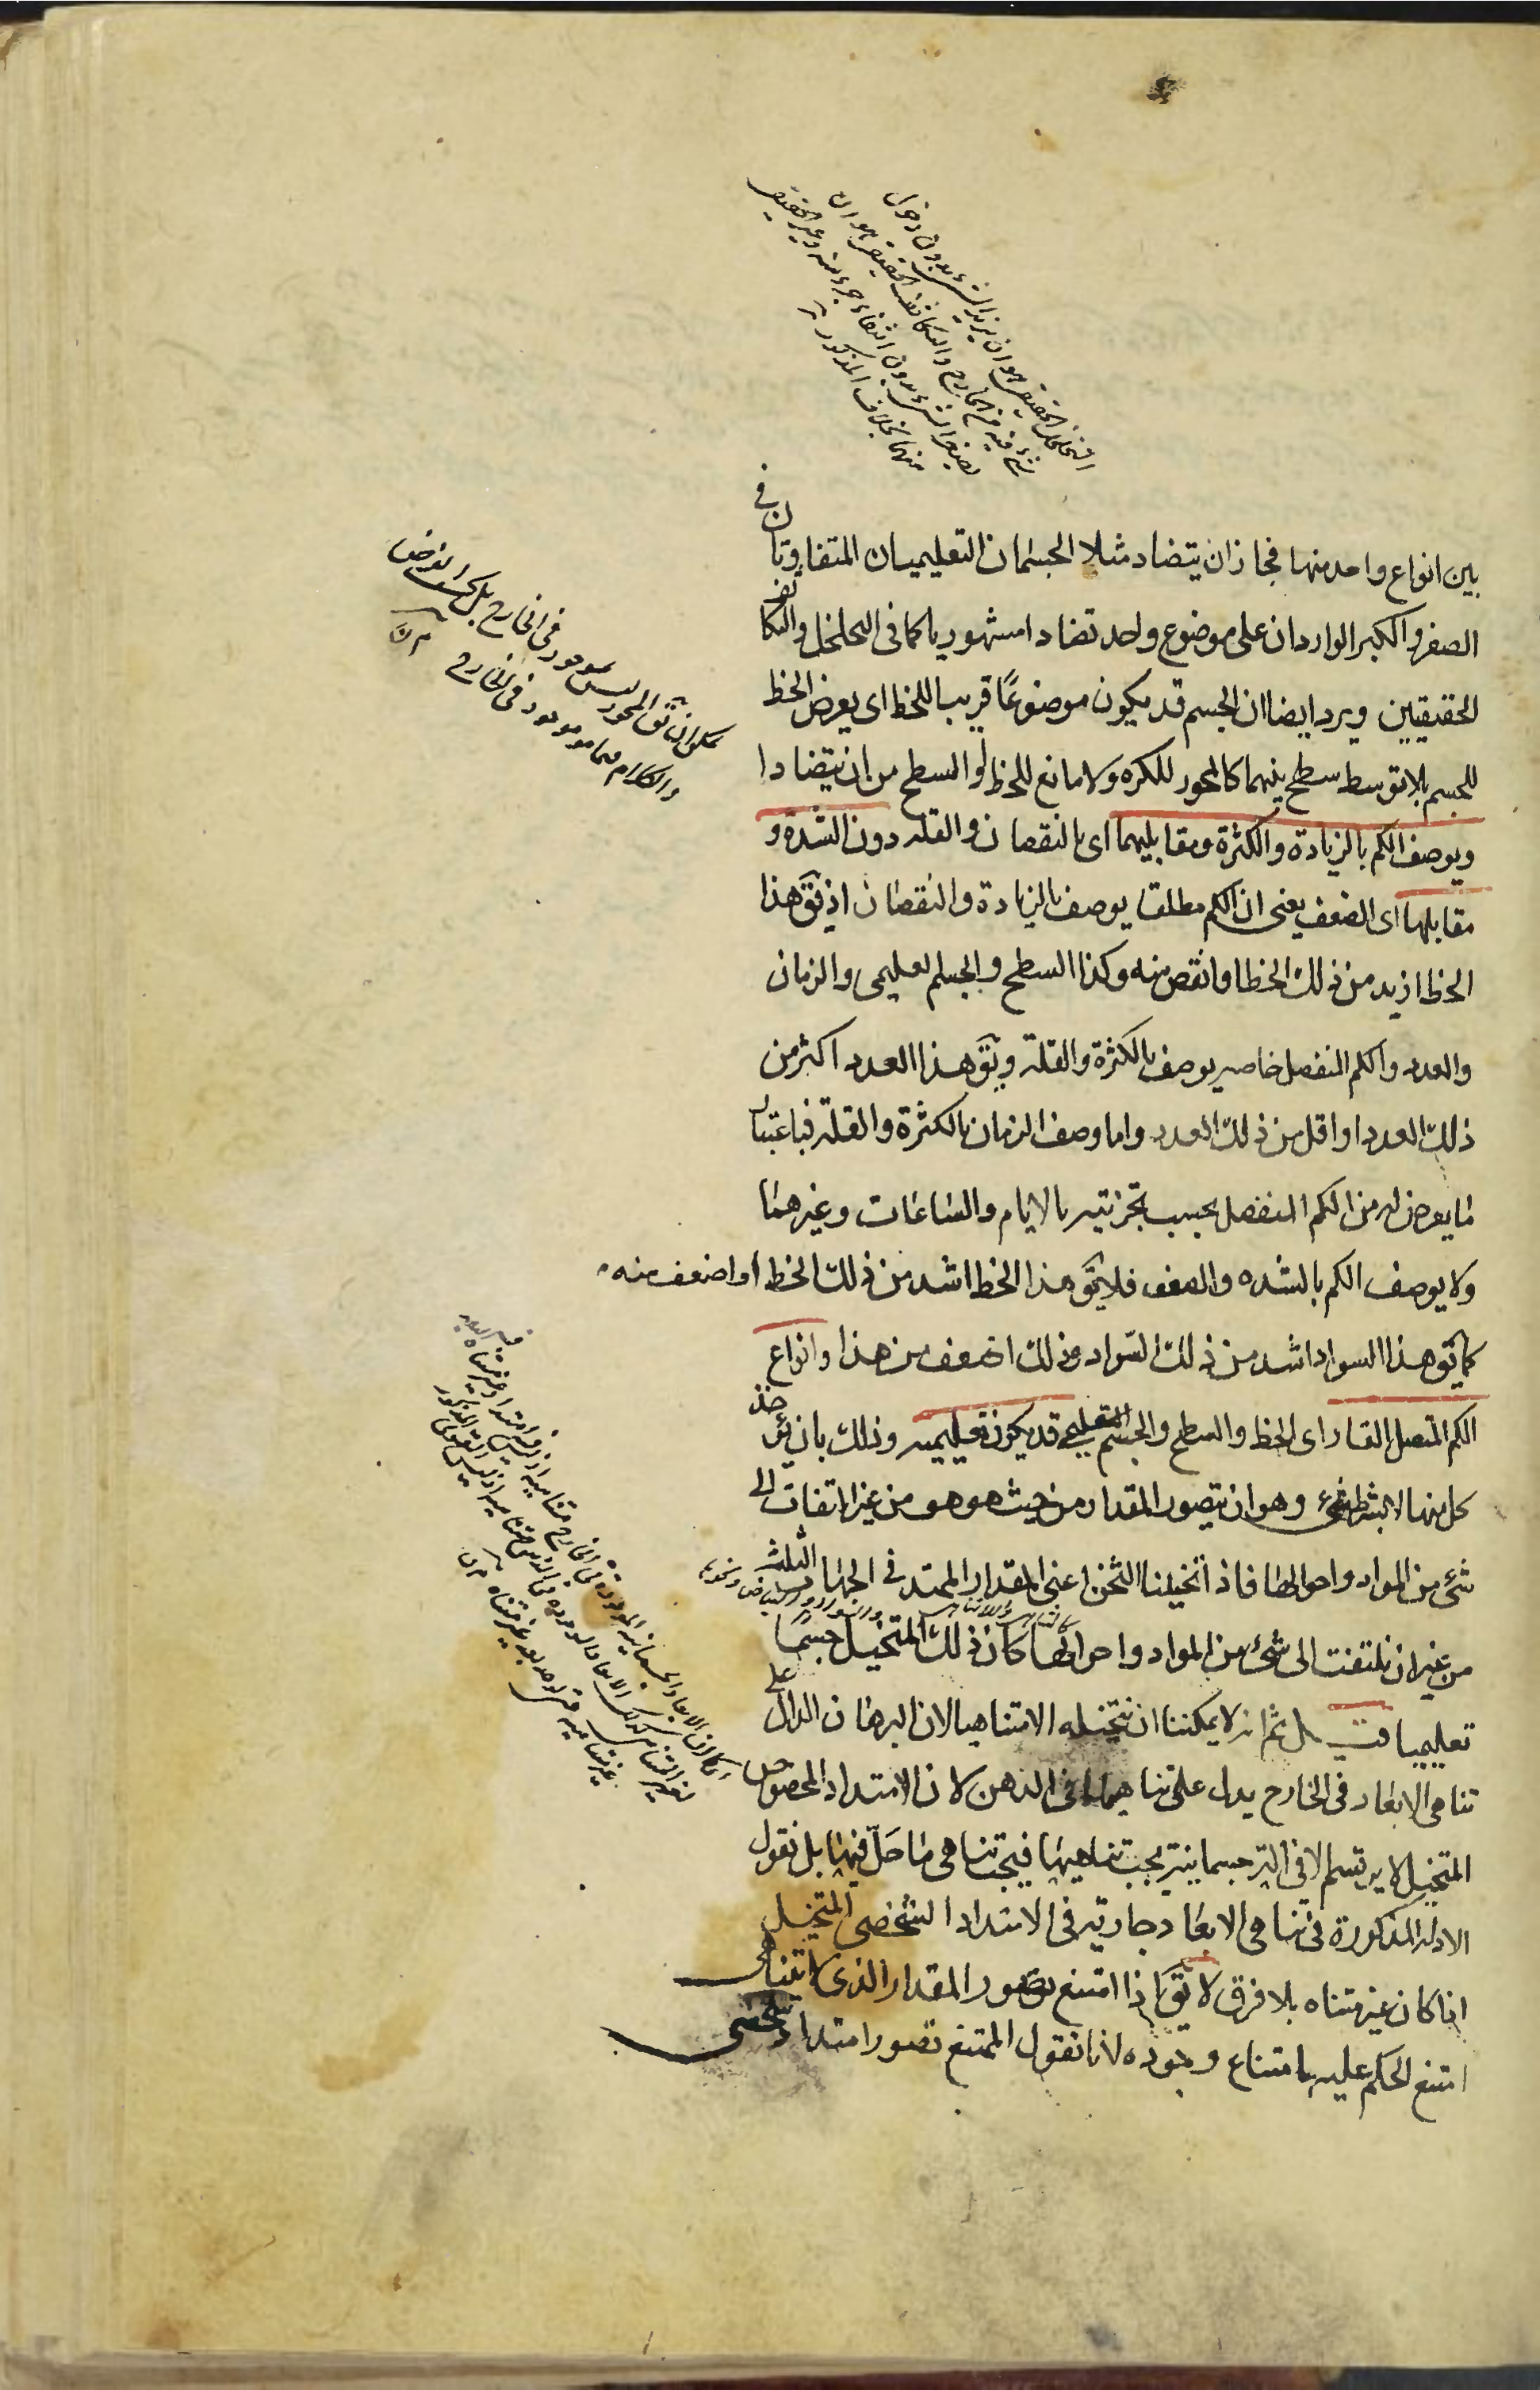 التخلخل الحقيقى هو ان يزيد الشىء بدون دخول
شىء فيه من الخارج والتكاثف الحقيقى هو ان
يصغر الشىء بدون انتفاء جزء منه وغير الحقيقى
منهما بخلاف المذكور
بين انواع واحد منها فجاز ان يتضاد مثلا الجسمان التعليميان المتفاوتان فى
الصغر والكبر الواردان على موضوع واحد تضادا مشهوريا كما فى التخلخل والتكاثف
الحقيقيين ويرد ايضا ان الجسم قد يكون موضوعًا قريبا للخط اى يعرض الخط
للجسم بلا توسط سطح بينهما كالمحور للكره ولا مانع للخط او السطح من ان يتضادا
ويوصف الكم بالزيادة والكثرة ومقابليهما اى بالنقصان والقله دون الشدة و
مقابلها اى الضعف يعنى ان الكم مطلقا يوصف بالزيادة والنقصان اذ يق هذا
الخط ازيد من ذلك الخط او انقص منه وكذا السطح والجسم تعليمى والزمان
والعدد والكم المنفصل خاصه يوصف بالكثرة والقلة ويق هذا العدد اكثر من
ذلك العدد او اقل من ذلك العدد واما وصف الزمان بالكثرة والقلة فباعتبار
ما يعرض له من الكم المنفصل بحسب تجزئته بالايام والساعات وغيرهما
ولا يوصف الكم بالشده والضعف فلا يق هذا الخط اشد من ذلك الخط او اضعف منه
كما يق هذا السواد اشد من ذلك السواد وذلك اضعف من هذا وانواع
الكم المتصل القار اى الخط والسطح والجسم التعليمى قد يكون تعليميه وذلك بان يؤخذ
كل منها لا بشرط شىء وهو ان يتصور المقدار من حيث هو هو من غير التفات الى
شىء من المواد واحوالها فاذا تخيلنا الثخن اعنى المقدار الممتد فى الجهات الثلث
من غير ان نلتفت الى شىء من المواد واحوالها كان ذلك المتخيل جسمًا
تعليميا ثم انه لا يمكننا ان نتخيله الا متناهيا لان البرهان الدال على
تناهى الابعاد فى الخارج يدل على تناهيها فى الذهن لان الامتداد المخصوص
المتخيل لا يرتسم الا فى الة جسمانية يجب تناهيها فيجب تناهى ما حلّ فيها بل نقول
الادله المذكورة فى تناهى الابعاد جارية فى الامتداد الشخصى المتخيل
اذا كان غير متناه بلا فرق لا يق اذا امتنع تصور المقدار الذى لا يتناهى
امتنع الحكم عليه بامتناع وجوده لانا نقول الممتنع تصور امتداد شخصى
يمكن ان يق المحور ليس بموجود فى الخارج بل بحسب الفرض
والكلام فيما هو موجود فى الخارج